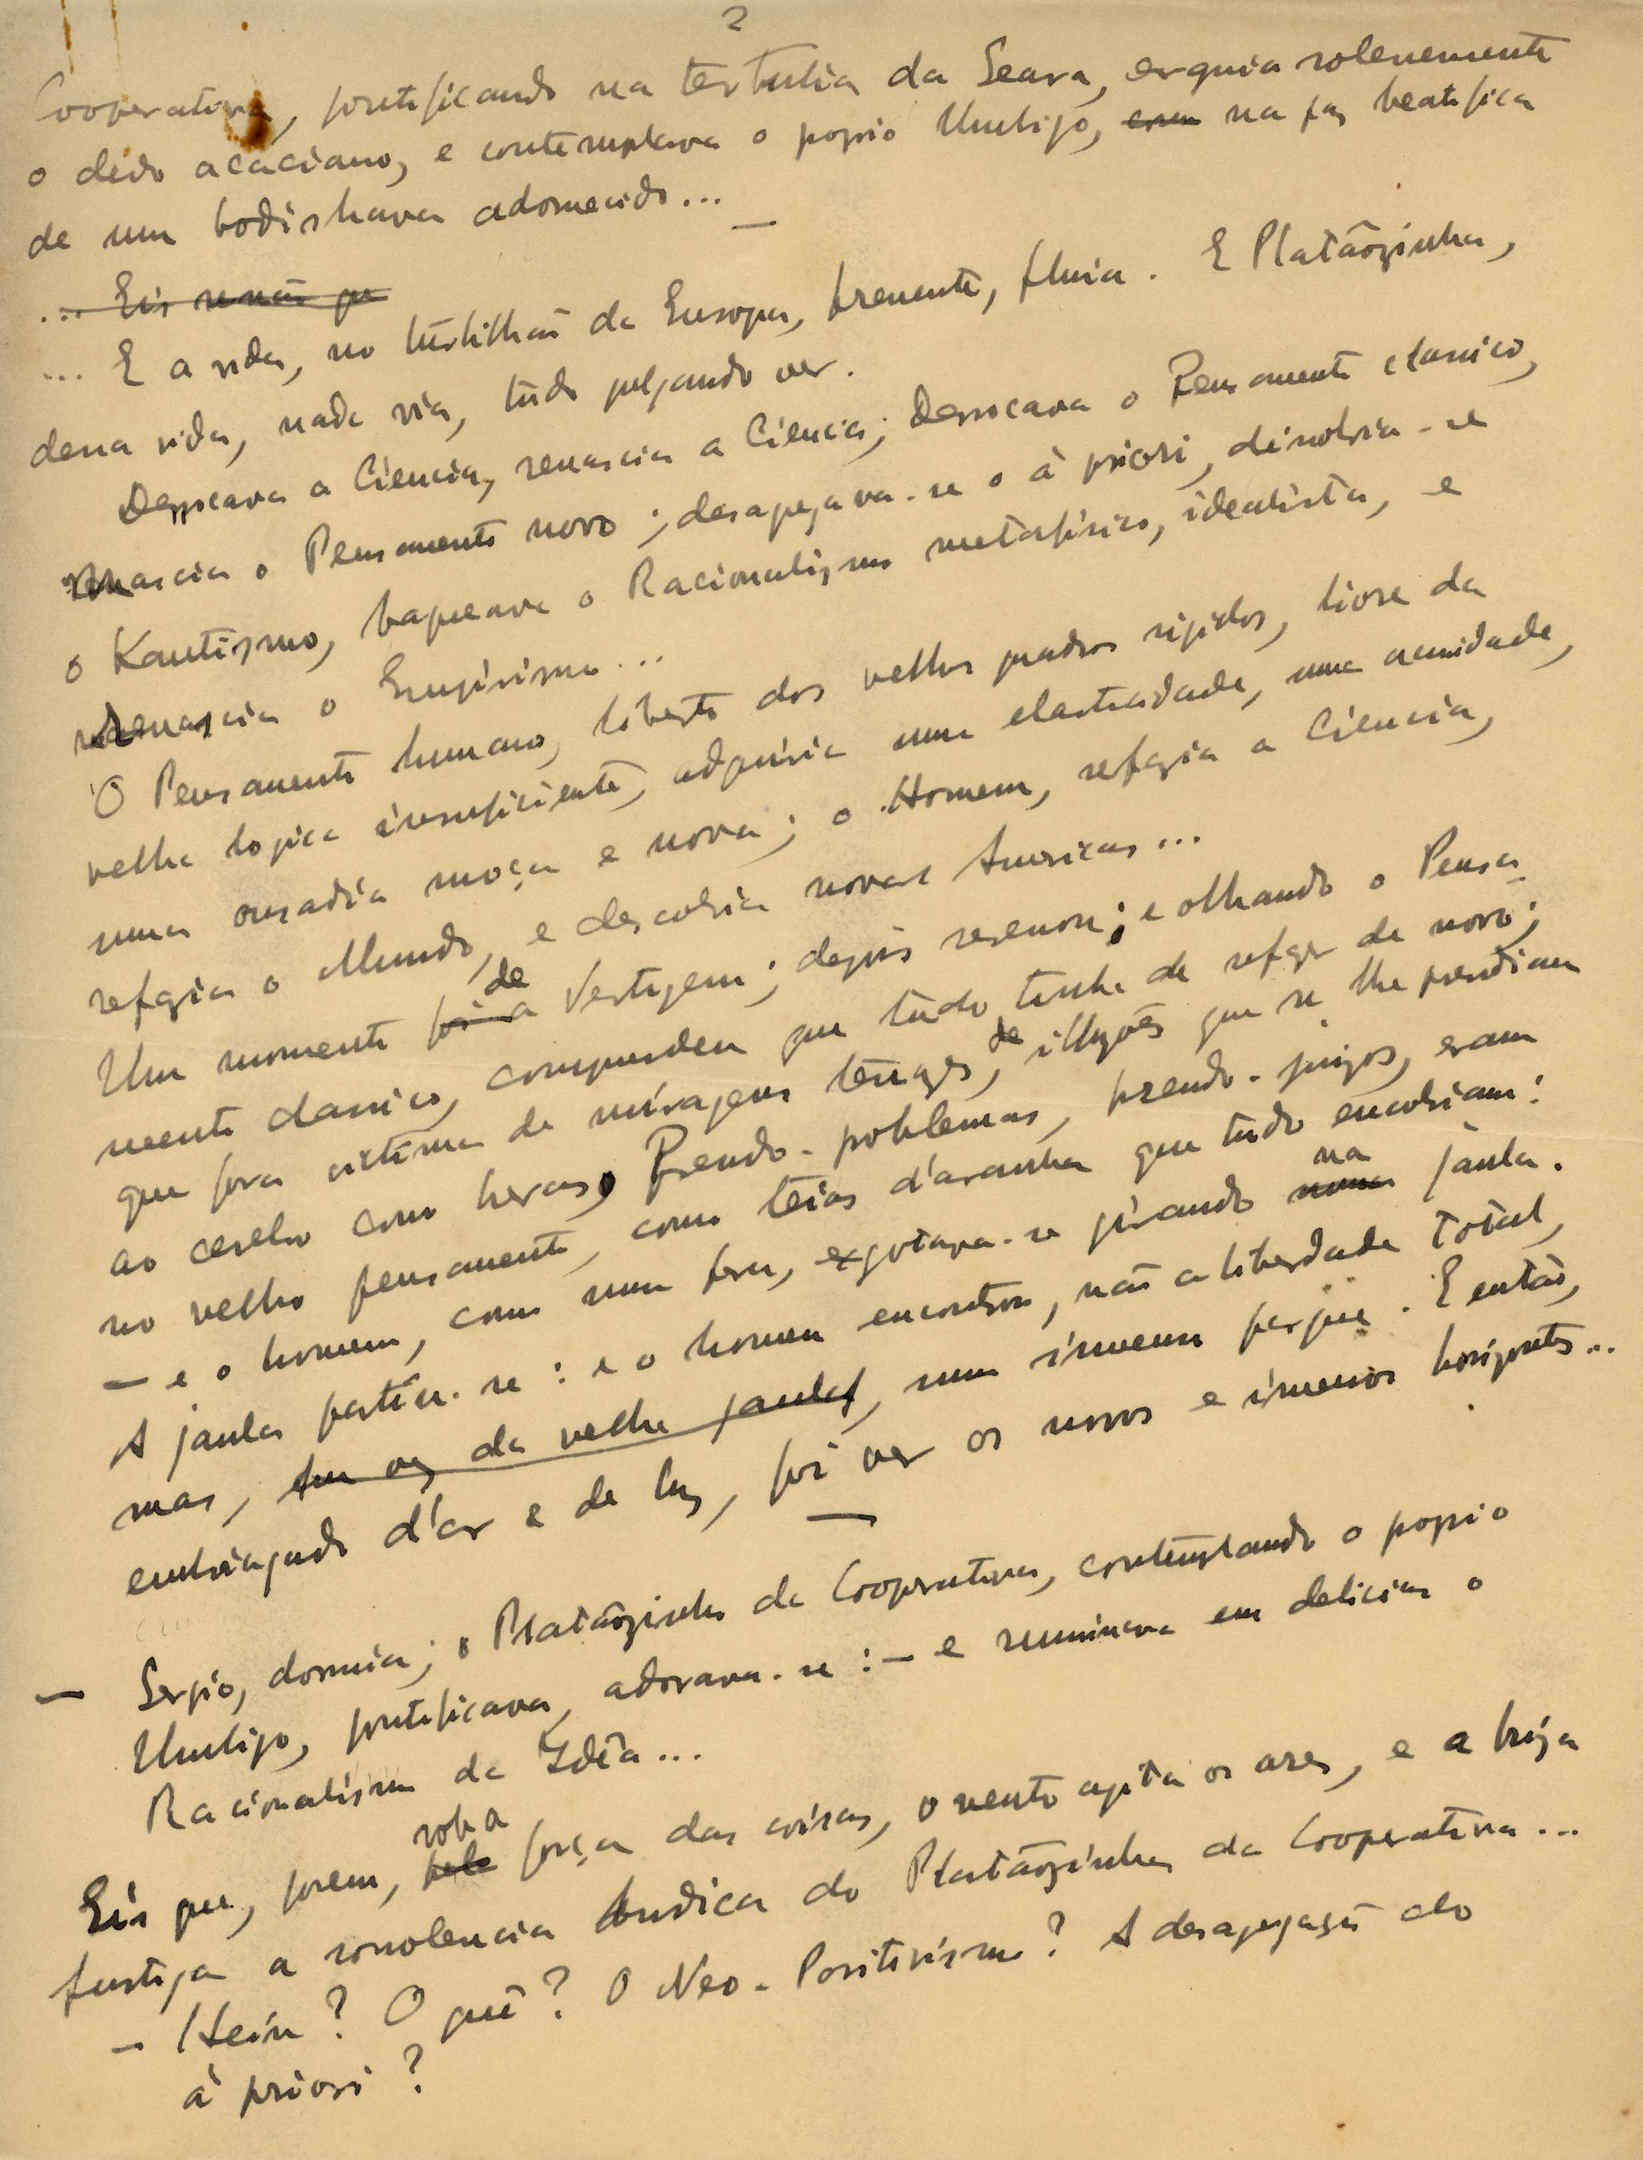 2
Cooperativa, pontificando na tertulia da Seara, erguia solenemente
o dedo acaciano, e contemplava o propio Umbigo, com na faz beatifica
de um bodishava adormecido...
... Eis senão que
... E a vida, no turbilhão da Europa, fremente, fluia. E Platãozinho,
dessa vida, nada via, tudo julgando ver.
Derrocava a Ciencia, renascia a Ciencia; Derrocava o Pensamento classico,
renascia o Pensamento novo; desagregava-se o à priori, dissolvia-se
o Kantismo, baqueava o Racionalismo metafisico, idealista, e
renascia o Empirismo...
O Pensamento humano, liberto dos velhos quadros rigidos, livre da
velha logica insuficiente, adquiria uma elasticidade, uma acuidade,
uma ousadia moça e nova; o Homem, refazia a Ciencia,
refazia o Mundo, e descobria novas Americas...
Um momento foi a de Vertigem; depois serenou; e olhando o Pensa-
mento classico, compreendeu que tudo tinha de refazer de novo;
que fora vitima de miragens tenazes, de illuzões que se lhe prendiam
ao cerebro como heras, Pseudo-problemas, pseudo-juizos, eram
no velho pensamento, como teias d'aranha que tudo encobriam:
— e o homem, como uma fera, exgotava-se girando numa na jaula.
A jaula partiu-se: e o homem encontrou, não a liberdade total,
mas, em vez da velha jaula, um imenso parque. E então,
embriagado d'ar e de luz, foi ver os novos e imensos horizontes...
— Sergio, dormia; o Platãozinho da Cooperativa, contemplando o propio
Umbigo, pontificava, adorava-se: — e ruminava em delicias o
Racionalismo da Idêa...
Eis que, porem, pela sob a força das coisas, o vento agita os ares, e a briza
fustiga a sonolencia budica do Platãozinho da Cooperativa...
— Hein? O quê? O Neo-Positivismo? A desagregação do
à priori?